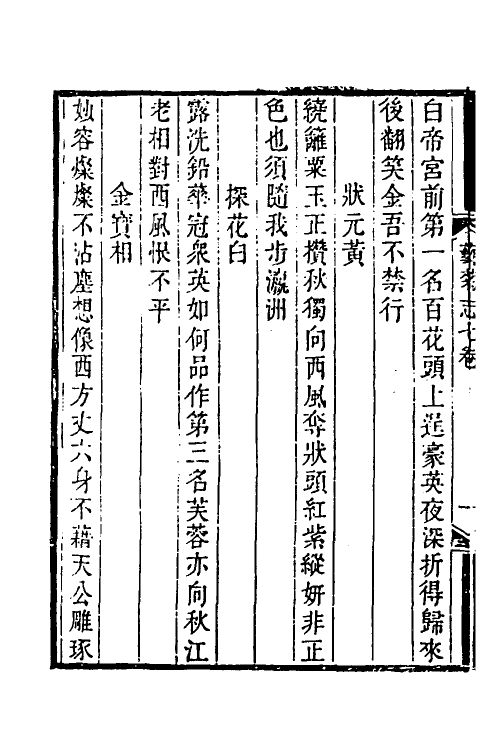 白帝宮前第一名百花頭上逞豪英夜深折得歸來
後翻笑金吾不禁行
狀元黃
繞籬粟玉正攢秋獨向西風奪狀頭紅紫縱妍非正
色也須隨我步瀛洲
探花白
露洗鉛華冠衆英如何品作第三名芙蓉亦向秋江
老相對西風恨不平
金寶相
妙容燦燦不沾塵想像西方丈六身不藉天公雕琢
藝菊志七卷